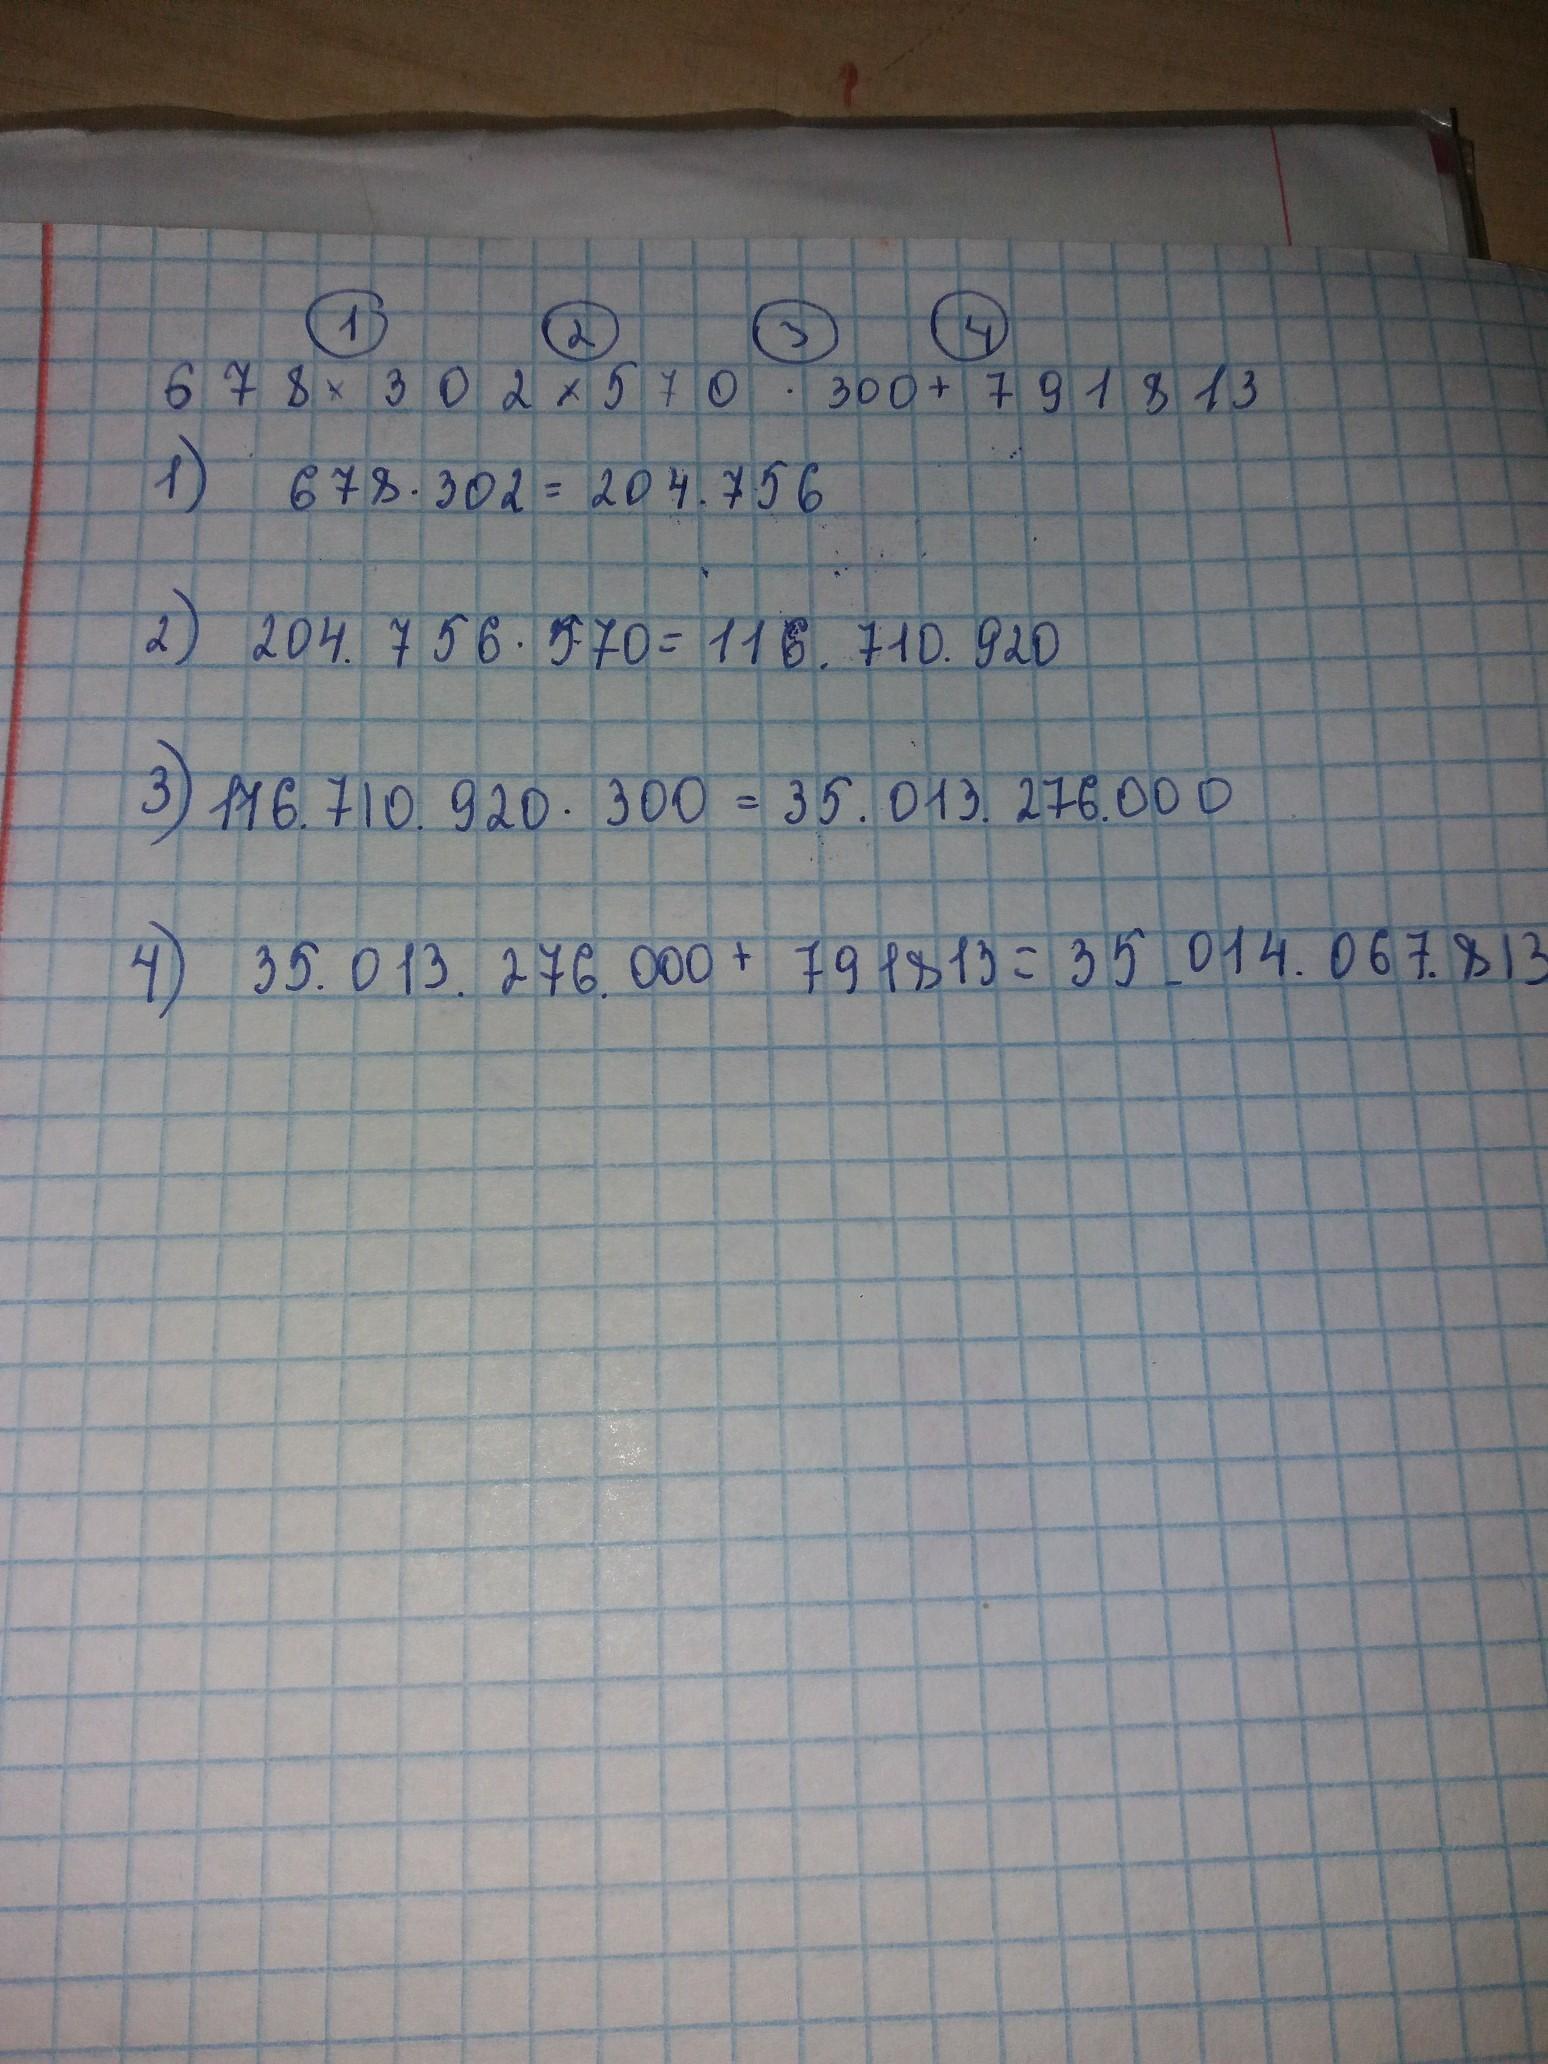 1 2 3 4
678 × 302 × 570 · 300 + 791813
1) 678 · 302 = 204.756
2) 204.756 · 570 = 116.710.920
3) 116.710.920 · 300 = 35.013.276.000
4) 35.013.276.000 + 791813 = 35.014.067.813